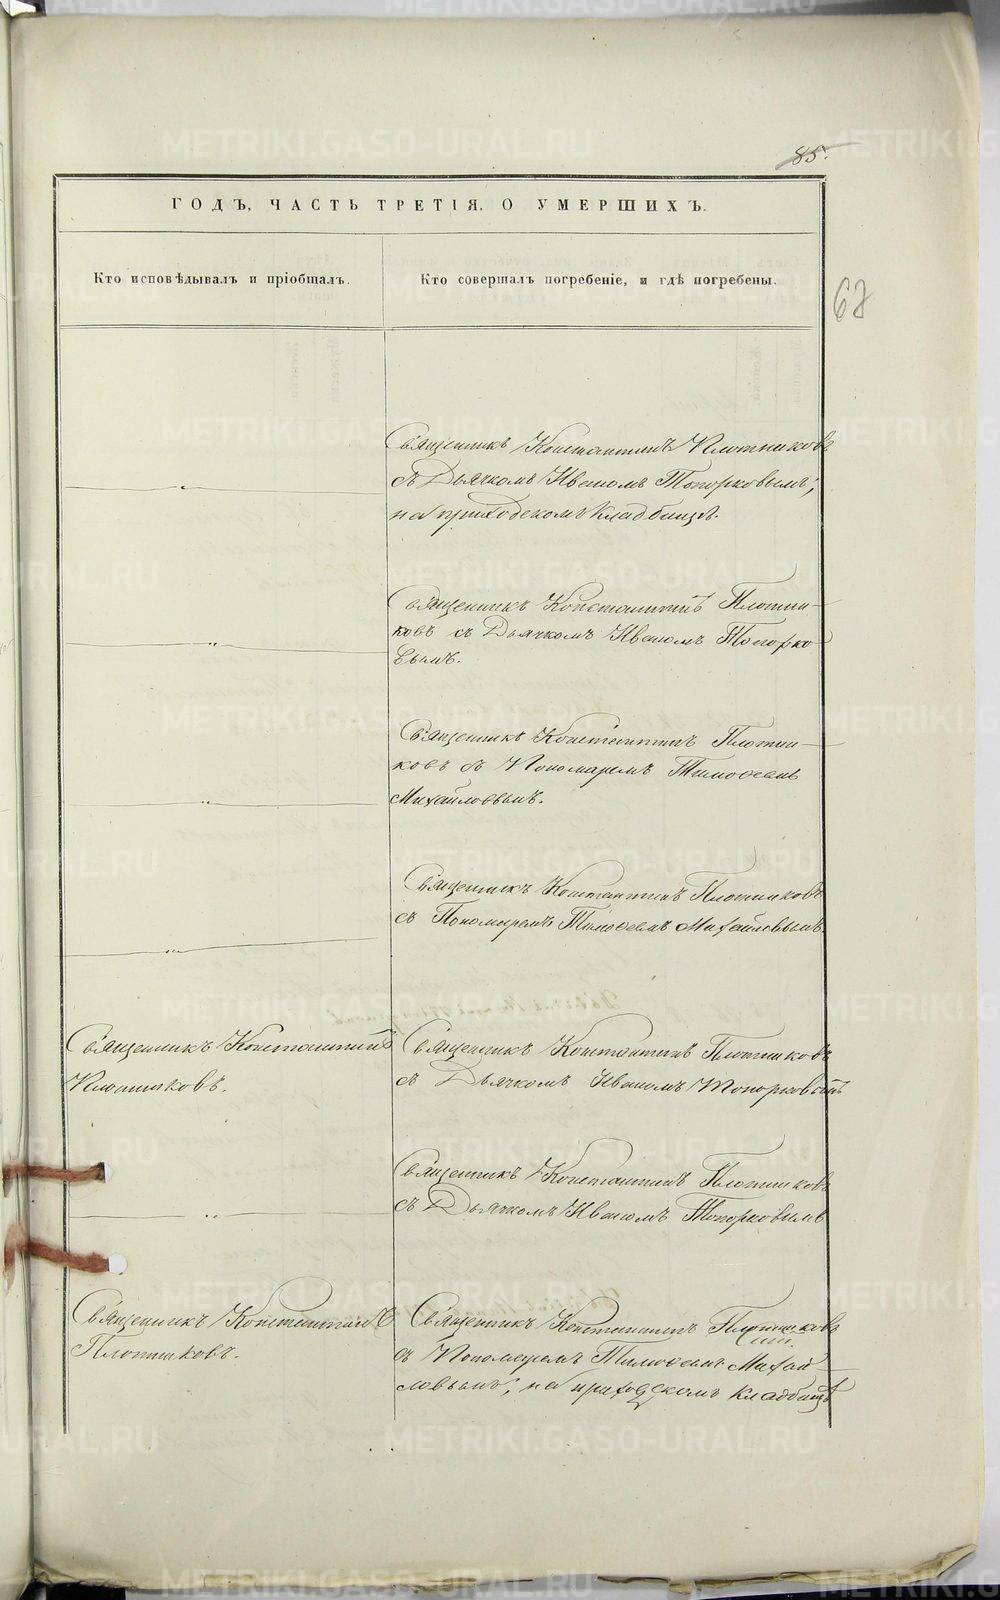 85.
ГОДЪ, ЧАСТЬ ТРЕТІЯ, О УМЕРШИХЪ.
Кто исповѣдывалъ и пріобщалъ.
Кто совершалъ погребеніе, и гдѣ погребены.
Священникъ Константинъ Плотниковъ
съ Дьячкомъ Иваномъ Топорковымъ,
на приходскомъ кладбищѣ.
Священникъ Константинъ Плотни-
ковъ съ Дьячкомъ Иваномъ Топорко-
вымъ.
Священникъ Константинъ Плотни-
ковъ съ Пономаремъ Тимофеемъ
Михайловымъ.
Священникъ Константинъ Плотниковъ
съ Пономаремъ Тимофеемъ Михайловымъ
Священникъ Константинъ
Плотниковъ.
Священникъ Константинъ Плотниковъ
съ Дьячкомъ Иваномъ Топорковымъ
Священникъ Константинъ Плотниковъ
съ Дьячкомъ Иваномъ Топорковымъ
Священникъ Константинъ
Плотниковъ.
Священникъ Константинъ Плотниковъ
съ Пономаремъ Тимофеемъ Михай-
ловымъ, на приходскомъ кладбищѣ
METRIKI.GASO-URAL.RU